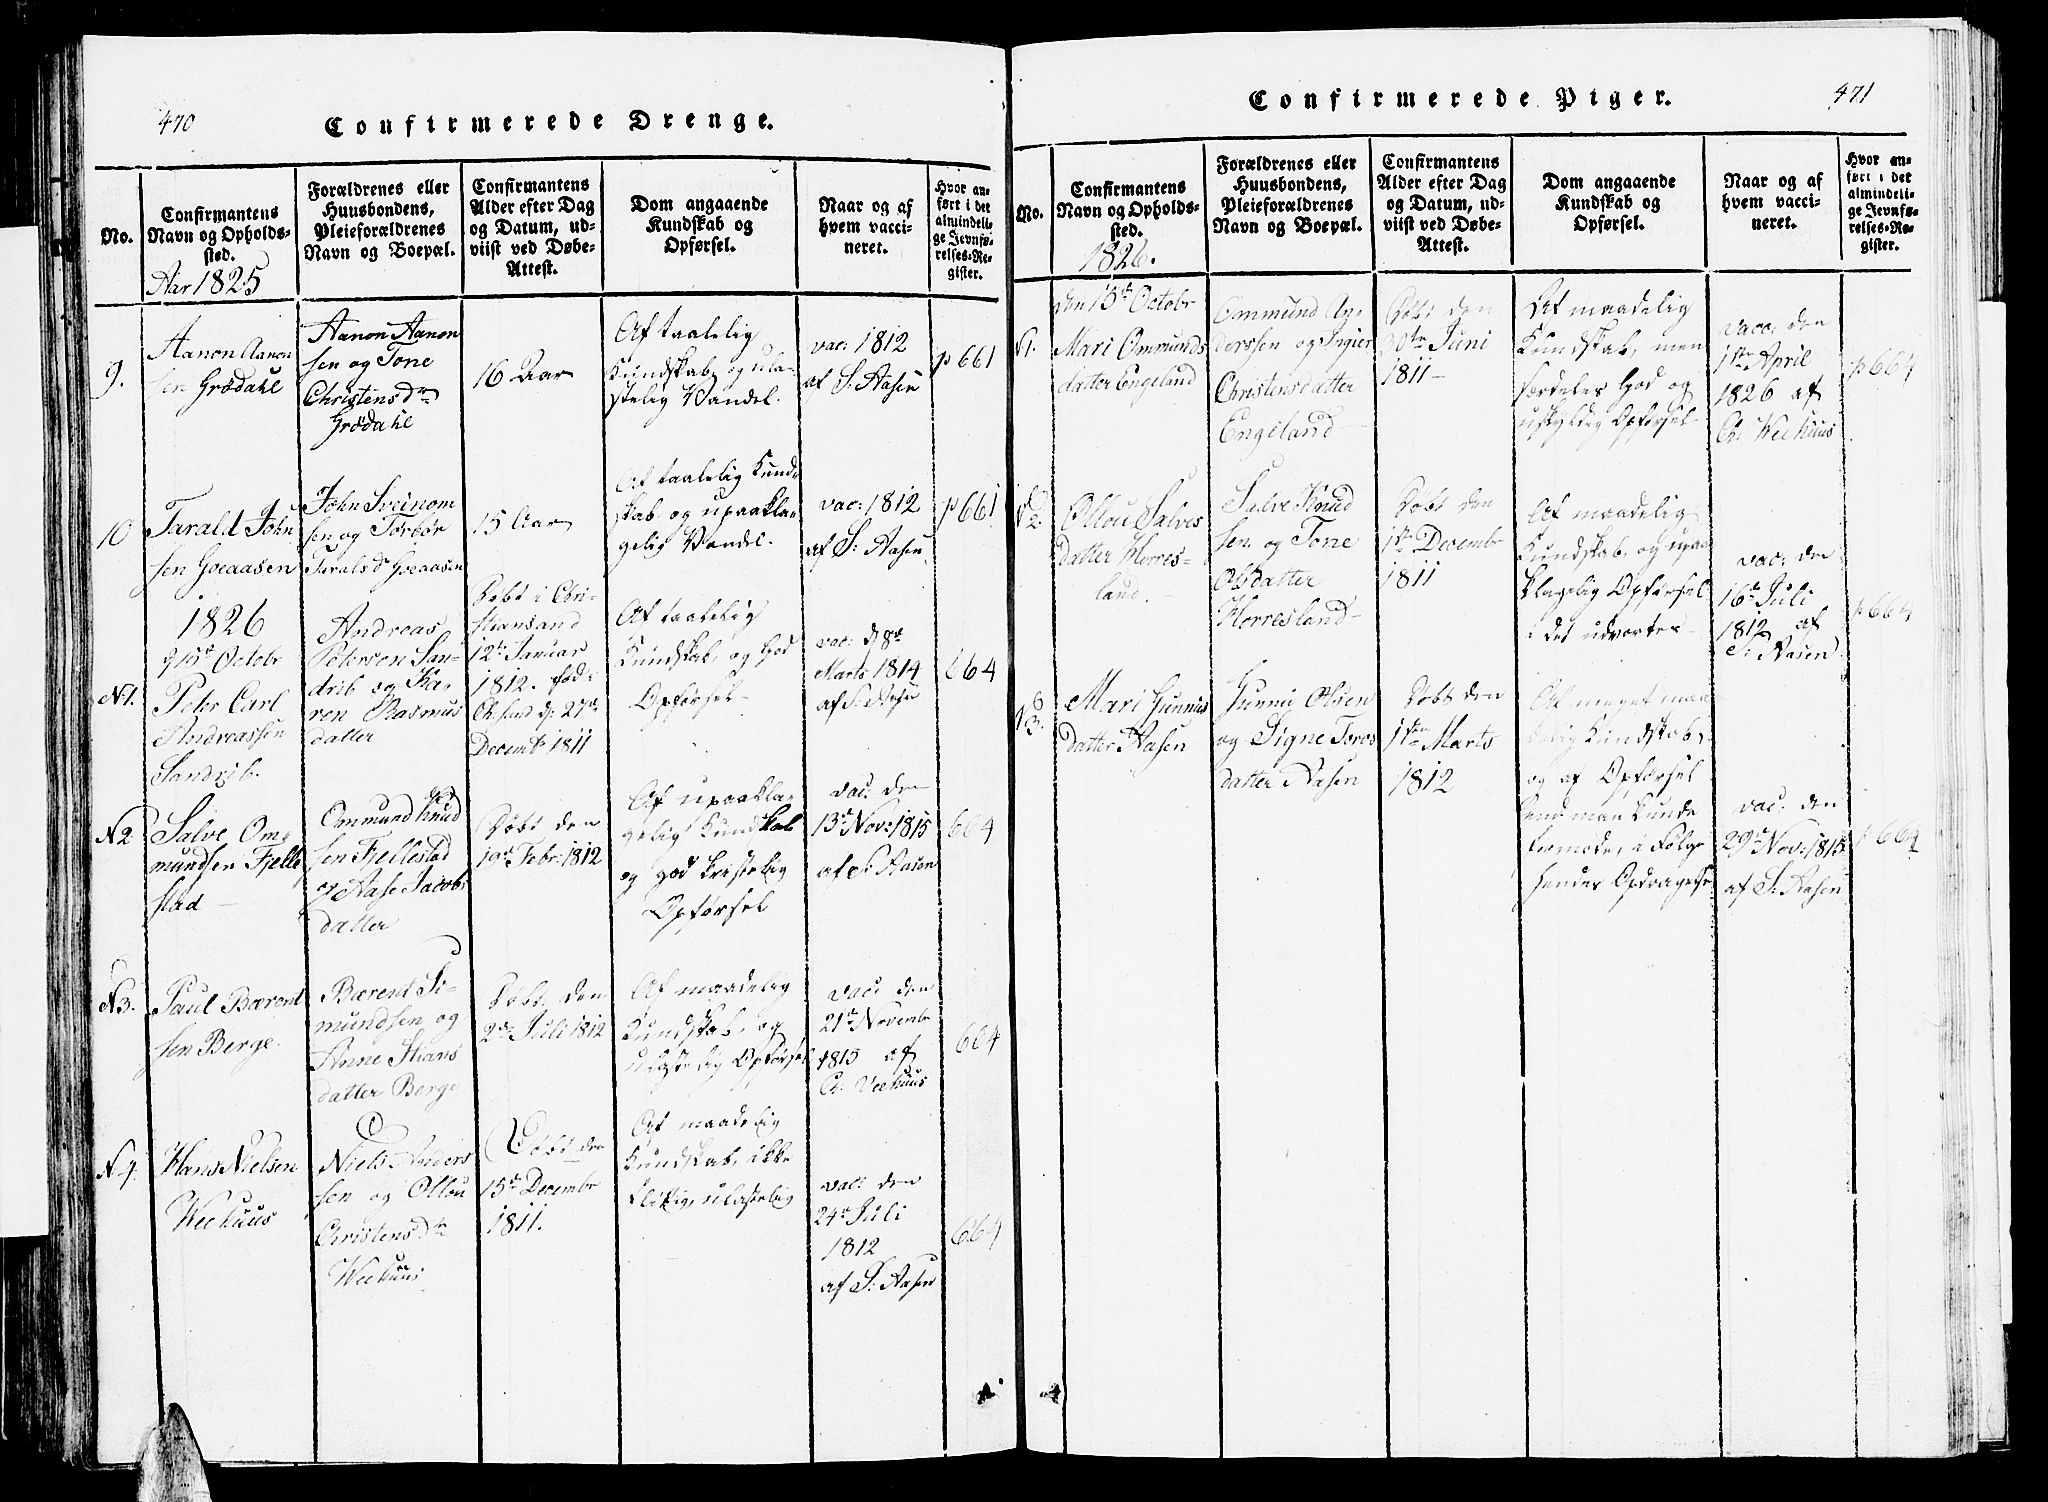 470
Confirmerede Drenge.
No.
Confirmantens
Navn og Opholds-
sted.
Aar 1825
Forældrenes eller
Huusbondens,
Pleieforældrenes
Navn og Boepæl.
Confirmantens
Alder efter Dag
og Datum, ud-
viist ved Døbe-
Attest.
Dom angaaende
Kundskab og
Opførsel.
Naar og af
hvem vacci-
neret.
Hvor an-
ført i det
almindeli-
ge Jevnfø-
relses-Re-
gister.
9.
Aanon Aanon
sen Grødahl
Aanon Aanon
sen og Tone
Christensdr
Grødahl
16 Aar
Af taalelig
Kundskab, og ula-
stelig Vandel.
vac: 1812
af S: Aasen
p 661
10
Tarald John
sen Goeaasen
John Sveinom
sen og Torbor
Taralsdr Goeaasen
15 Aar
Af taalelig Kund-
skab og upaakla-
gelig Vandel.
vac: 1812
af S: Aasen
p 661
1826
d 15de Octobr
N 1.
Peter Carl
Andreassen
Sandrib.
Andreas
Peterson San-
drib og Ka-
ren Rasmus
datter
Døbt i Chri-
stiansand
12te Januar
1812. fød i
Ch:sand d: 27de
Decembr 1811
Af taalelig
Kundskab, og God
Opførsel
vac: d 8de
Marts 1814
af S: Aasen
664
N 2
Salve Om-
mundsen Fjelle
stad
Ommund Knud
sen Fjellestad
og Aase Jacobs
datter
Døbt den
19de Febr: 1812
Af upaakla-
gelig Kundskab
og god kristelig
Opførsel
vac: den
13de Nov: 1815
af S: Aasen
664
N 3.
Paul Bærent
sen Berge
Bærent Si-
mundsen og
Anne Stians
datter Berge
Døbt den
2de Juli 1812
Af maadelig
Kundskab, og
ulastelig Opførsel
vac: den
21de Novembr
1815 af
Ch: Veehuus
664
N. 4.
Hans Nielsen
Weehuus
Niels Anders
sen og Ollou
Christensdr
Weehuus
Døbt den
15de Decembr
1811.
Af maadelig
Kundskab, ikke
flittig, ulastelig
vac: den
24de Juli
1812
af S: Aasen
664
471
Confirmerede Piger.
No.
Confirmantens
Navn og Opholds-
sted.
1826.
Forældrenes eller
Huusbondens,
Pleieforældrenes
Navn og Boepæl.
Confirmantens
Alder efter Dag
og Datum, ud-
viist ved Døbe-
Attest.
Dom angaaende
Kundskab og
Opførsel.
Naar og af
hvem vacci-
neret.
Hvor an-
ført i det
almindeli-
ge Jevnfø-
relses-Re-
gister.
den 15de Octobr
N1.
Mari Ommunds
datter Engeland
Ommund An-
derssen og Ingier
Christensdatter
Engeland
Døbt den
30te Juni
1811
Af maadelig
Kundskab, men
særdeles God og
uskyldig Opførsel
vacc: den
1ste April
1826 af
Ch: Weehuus
p 664
N2.
Ollou Salves
datter Horres-
land.
Salve Knud
sen og Tone
Olsdatter
Horresland
Døbt den
1ste Decembr
1811
Af maadelig
Kundskab og upaa
klagelig Opførsel
i det udvortes
vac: den
16de Juli
1812 af
S: Aasen
p 664
N3.
Mari Gunnus
datter Aasen
Gunnu Olsen
og Signe Toros
datter Aasen
Døbt den
1ste Marts
1812
Af meget maa
delig Kundskab,
og af Opførsel
som man kunde
formode, i Følge
hendes Opdragelse
vac: den
29de Nov: 1815
af S. Aasen
p 664